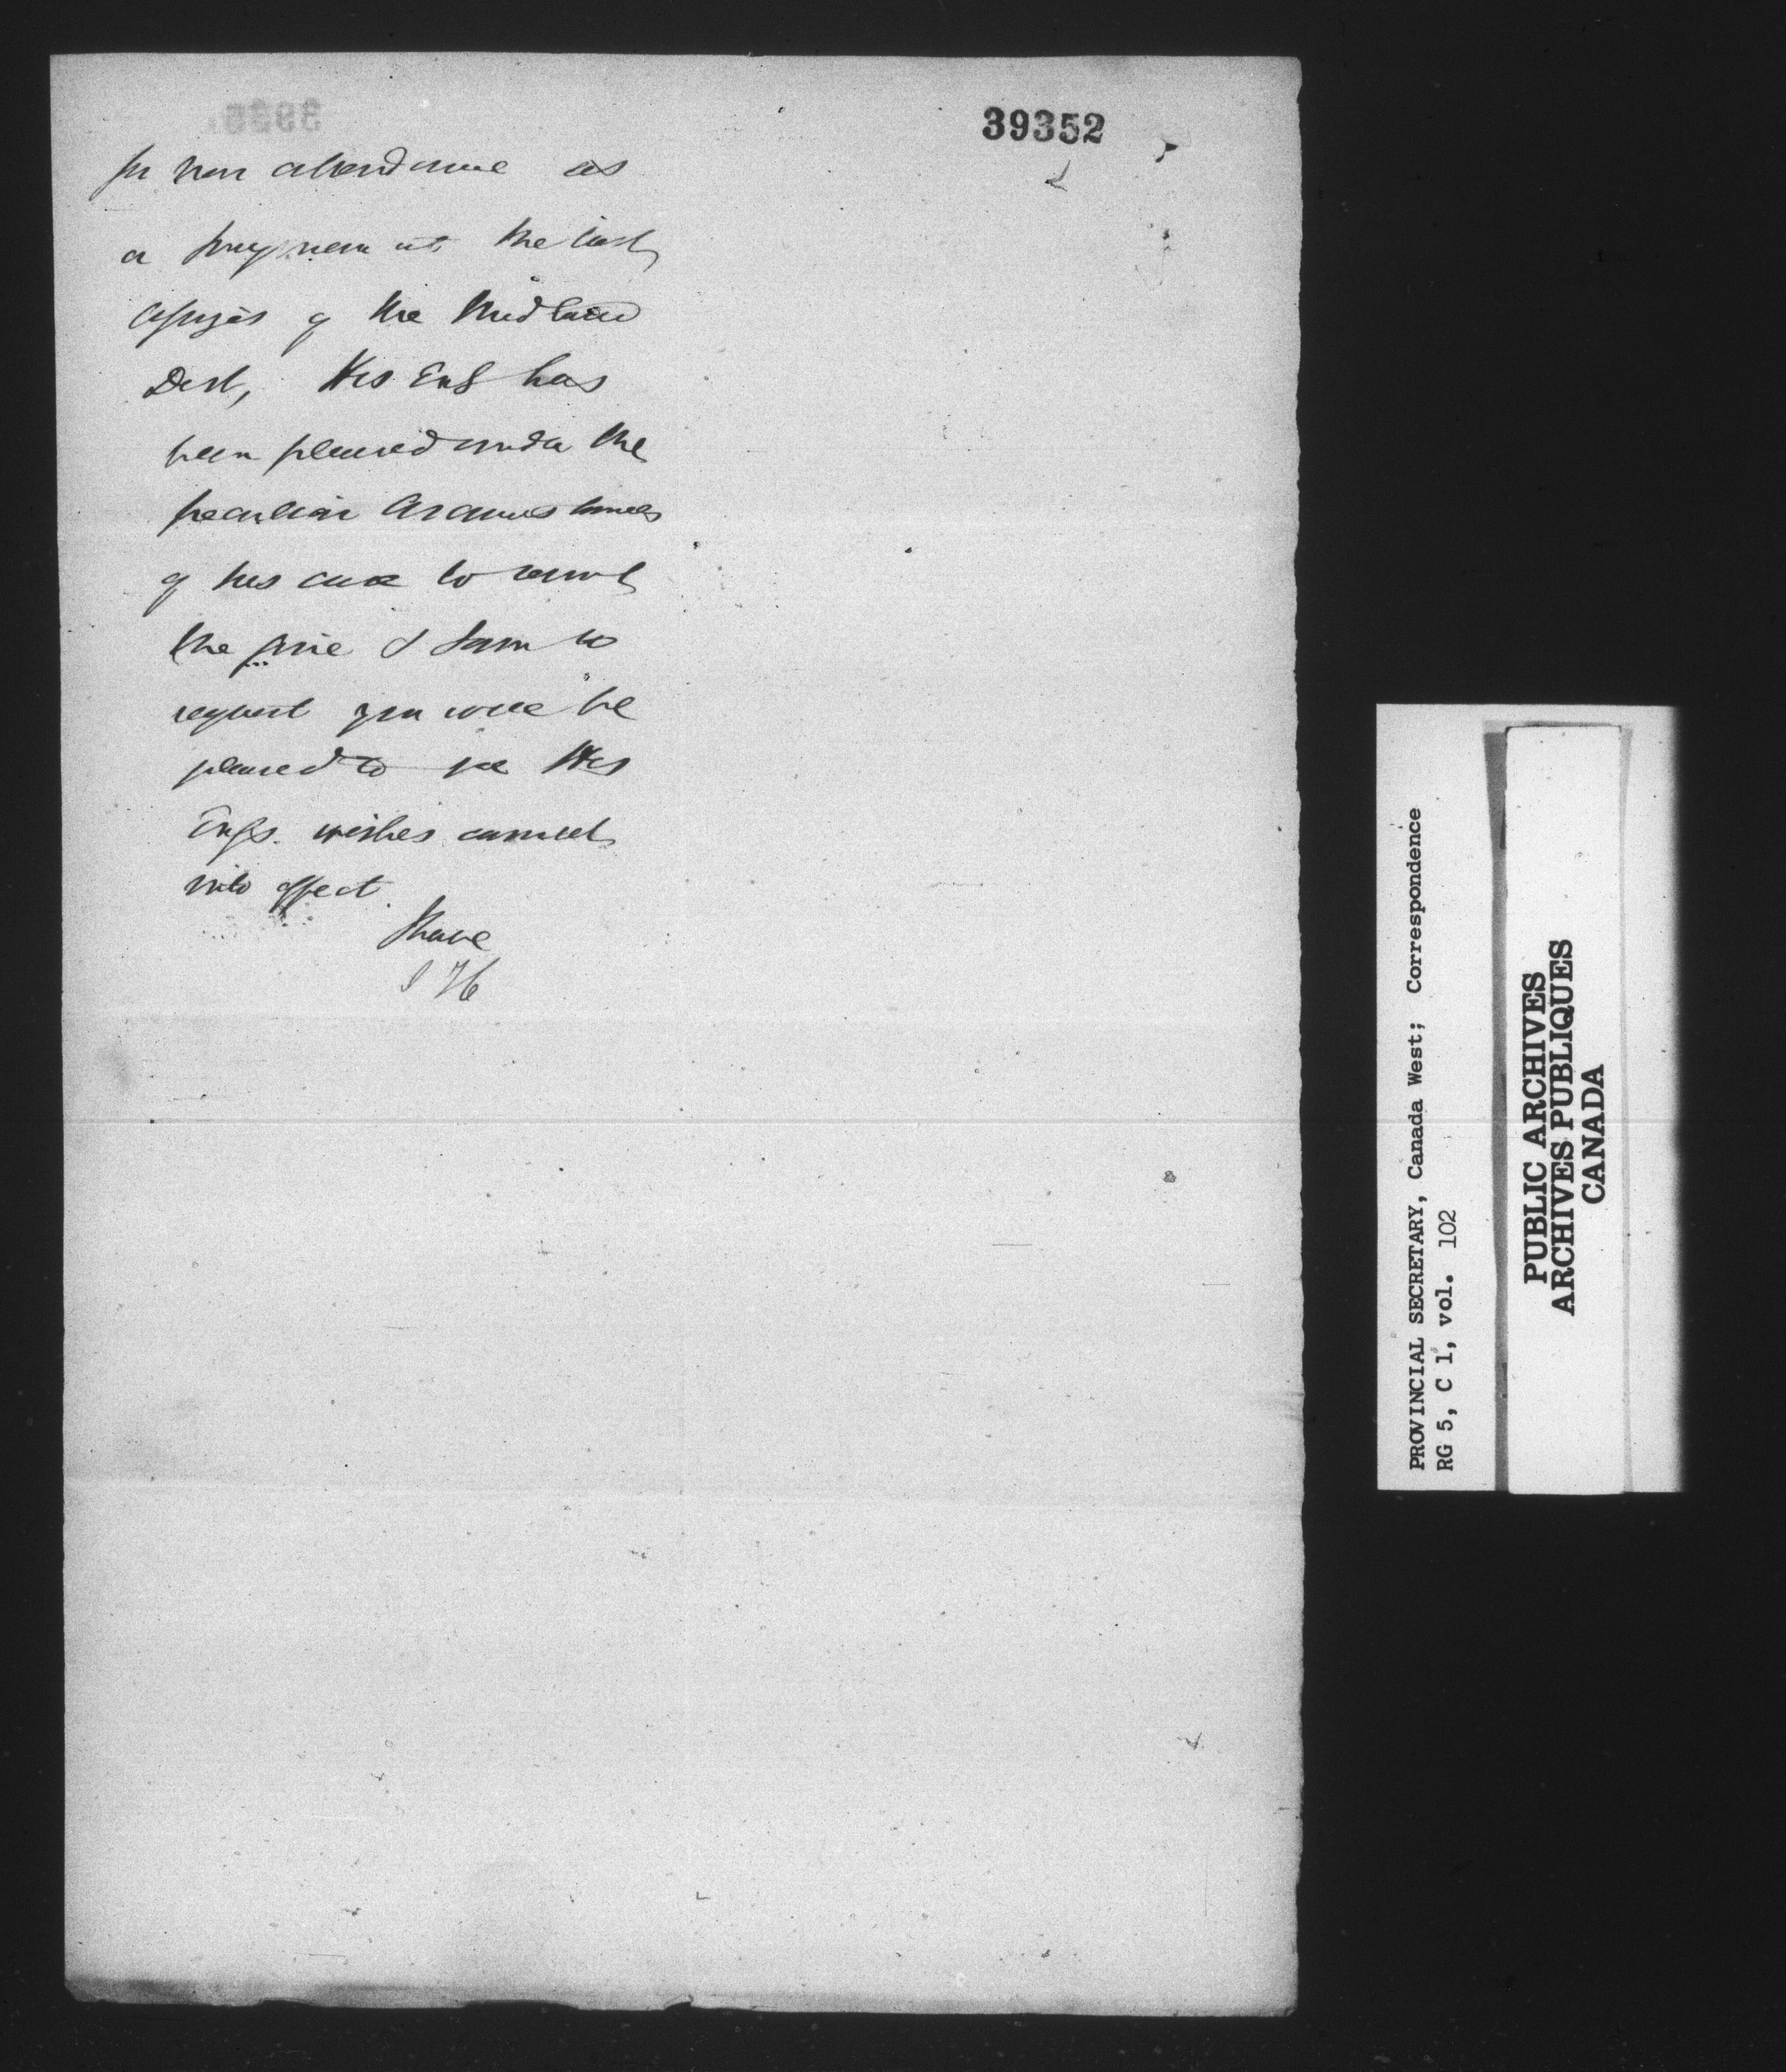 39352
for non attendance as
a juryman at the last
Assizes of the Midland
Dist, His Exy has
been pleased under the
peculiar circumstances
of his case to remit
the fine & I am to
request you will be
pleased to see His
Exys. wishes carried
into effect.
I have
PROVINCIAL SECRETARY, Canada West; Correspondence
RG 5, C 1, vol. 102
PUBLIC ARCHIVES
ARCHIVES PUBLIQUES
CANADA